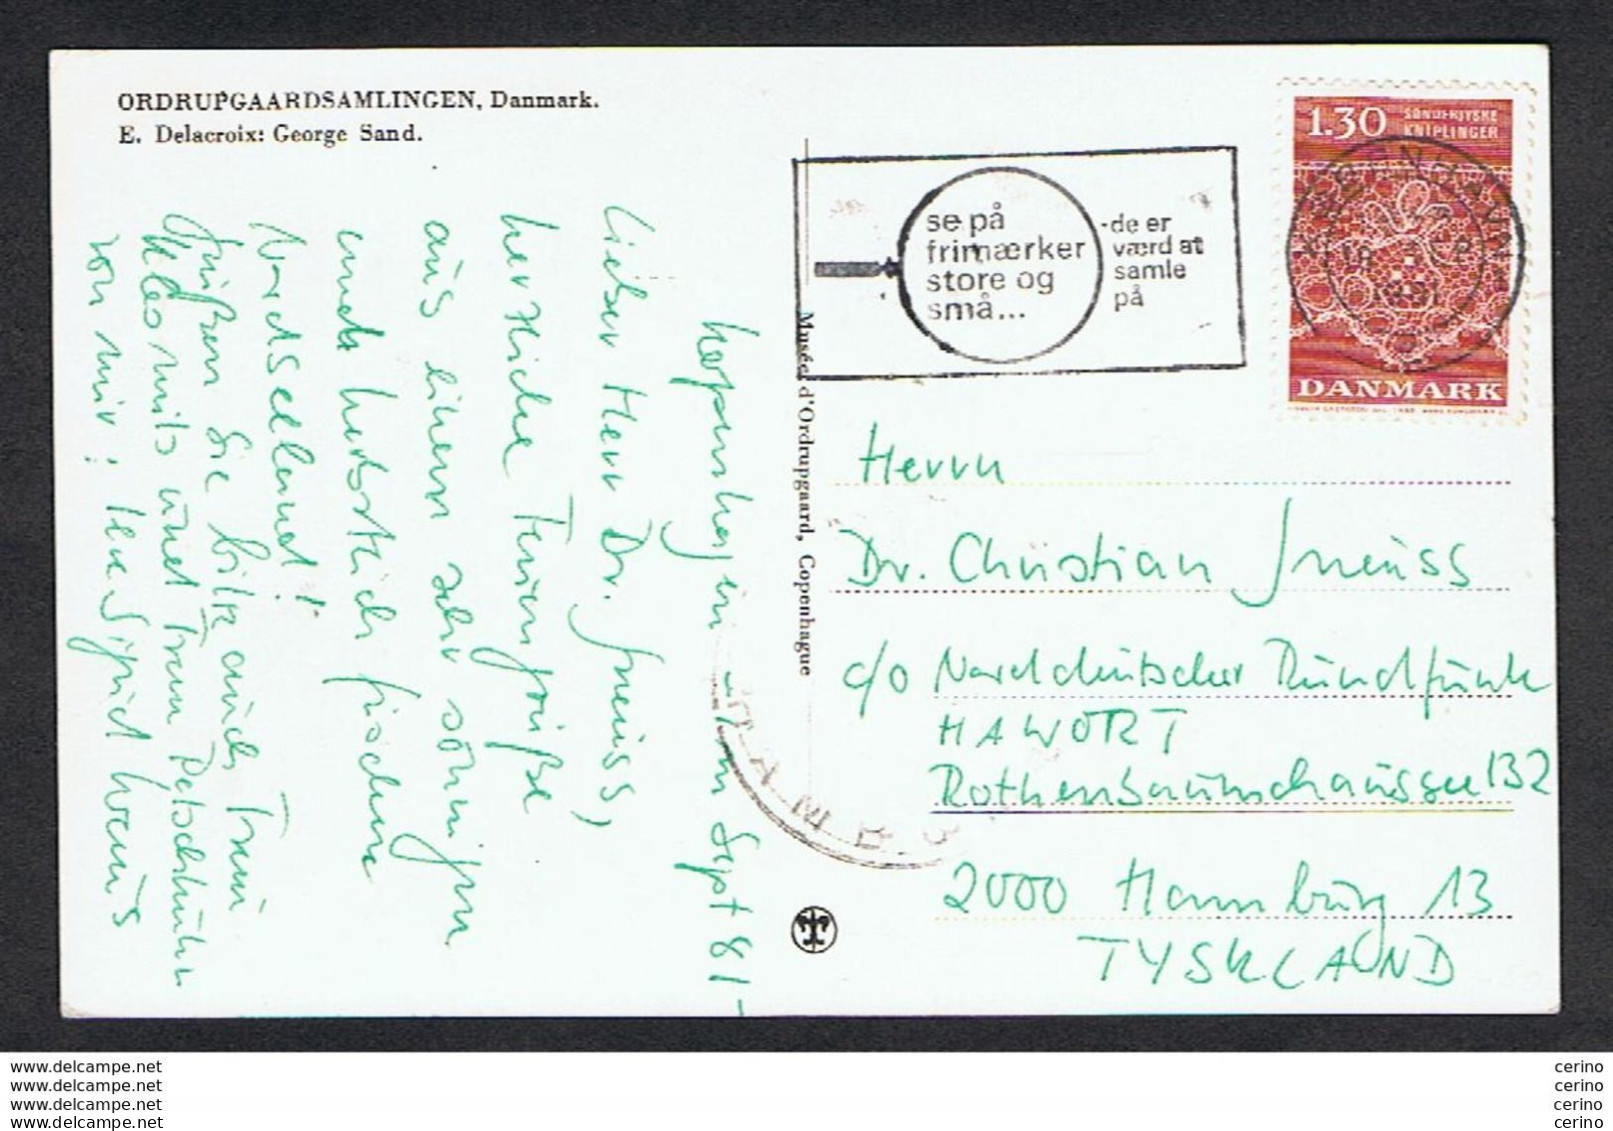 ORDRUPGAARDSAMLINGEN, Danmark.
E. Delacroix: George Sand.
Kopenhagen im Sept 81
Lieber Herr Dr. Gneuss,
herzliche Feriengrüße
aus einem sehr sonnigen
und herbstlich frischen
Nordseeland!
Grüßen Sie bitte auch Frau
und Frau
von mir! Ihre Sigrid
Musée d'Ordrupgaard, Copenhague
se på
frimærker
store og
små...
-de er
værd at
samle
på
KØBENHAVN
1981
1.30 SØNDERJYSKE
KNIPLINGER
DANMARK
Herrn
Dr. Christian Gneuss
c/o Norddeutscher Rundfunk
HAWORT
Rothenbaumchaussee 132
2000 Hamburg 13
TYSKLAND
www.delcampe.net
www.delcampe.net
www.delcampe.net
www.delcampe.net
cerino
cerino
cerino
cerino